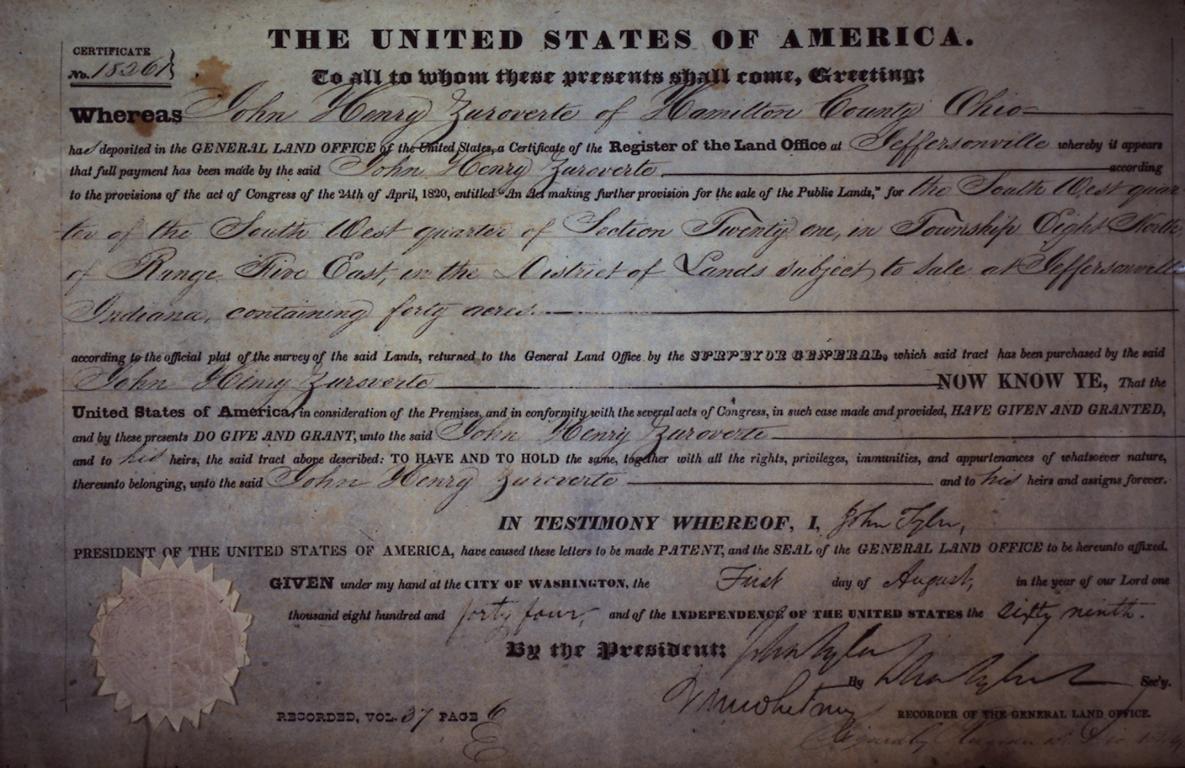 THE UNITED STATES OF AMERICA.
CERTIFICATE
No. 18261
To all to whom these presents shall come, Greeting:
Whereas John Henry Zuroverte of Hamilton County Ohio
has deposited in the GENERAL LAND OFFICE of the United States, a Certificate of the Register of the Land Office at Jeffersonville whereby it appears
that full payment has been made by the said John Henry Zuroverte according
to the provisions of the act of Congress of the 24th of April, 1820, entitled "An Act making further provision for the sale of the Public Lands," for the South West quar
ter of the South West quarter of Section Twenty one, in Township Eight North
of Range Five East, in the District of Lands subject to sale at Jeffersonville
Indiana, containing forty acres
according to the official plat of the survey of the said Lands, returned to the General Land Office by the SURVEYOR GENERAL, which said tract has been purchased by the said
John Henry Zuroverte NOW KNOW YE, That the
United States of America, in consideration of the Premises, and in conformity with the several acts of Congress, in such case made and provided, HAVE GIVEN AND GRANTED,
and by these presents DO GIVE AND GRANT, unto the said John Henry Zuroverte
and to his heirs, the said tract above described: TO HAVE AND TO HOLD the same, together with all the rights, privileges, immunities, and appurtenances of whatsoever nature,
thereunto belonging, unto the said John Henry Zuroverte and to his heirs and assigns forever.
IN TESTIMONY WHEREOF, I, John Tyler,
PRESIDENT OF THE UNITED STATES OF AMERICA, have caused these letters to be made PATENT, and the SEAL of the GENERAL LAND OFFICE to be hereunto affixed.
GIVEN under my hand at the CITY OF WASHINGTON, the First day of August, in the year of our Lord one
thousand eight hundred and forty four, and of the INDEPENDENCE OF THE UNITED STATES the sixty ninth.
By the President: John Tyler
By Tyler Sec'y.
RECORDED, VOL. 37 PAGE 6 RECORDER OF THE GENERAL LAND OFFICE.